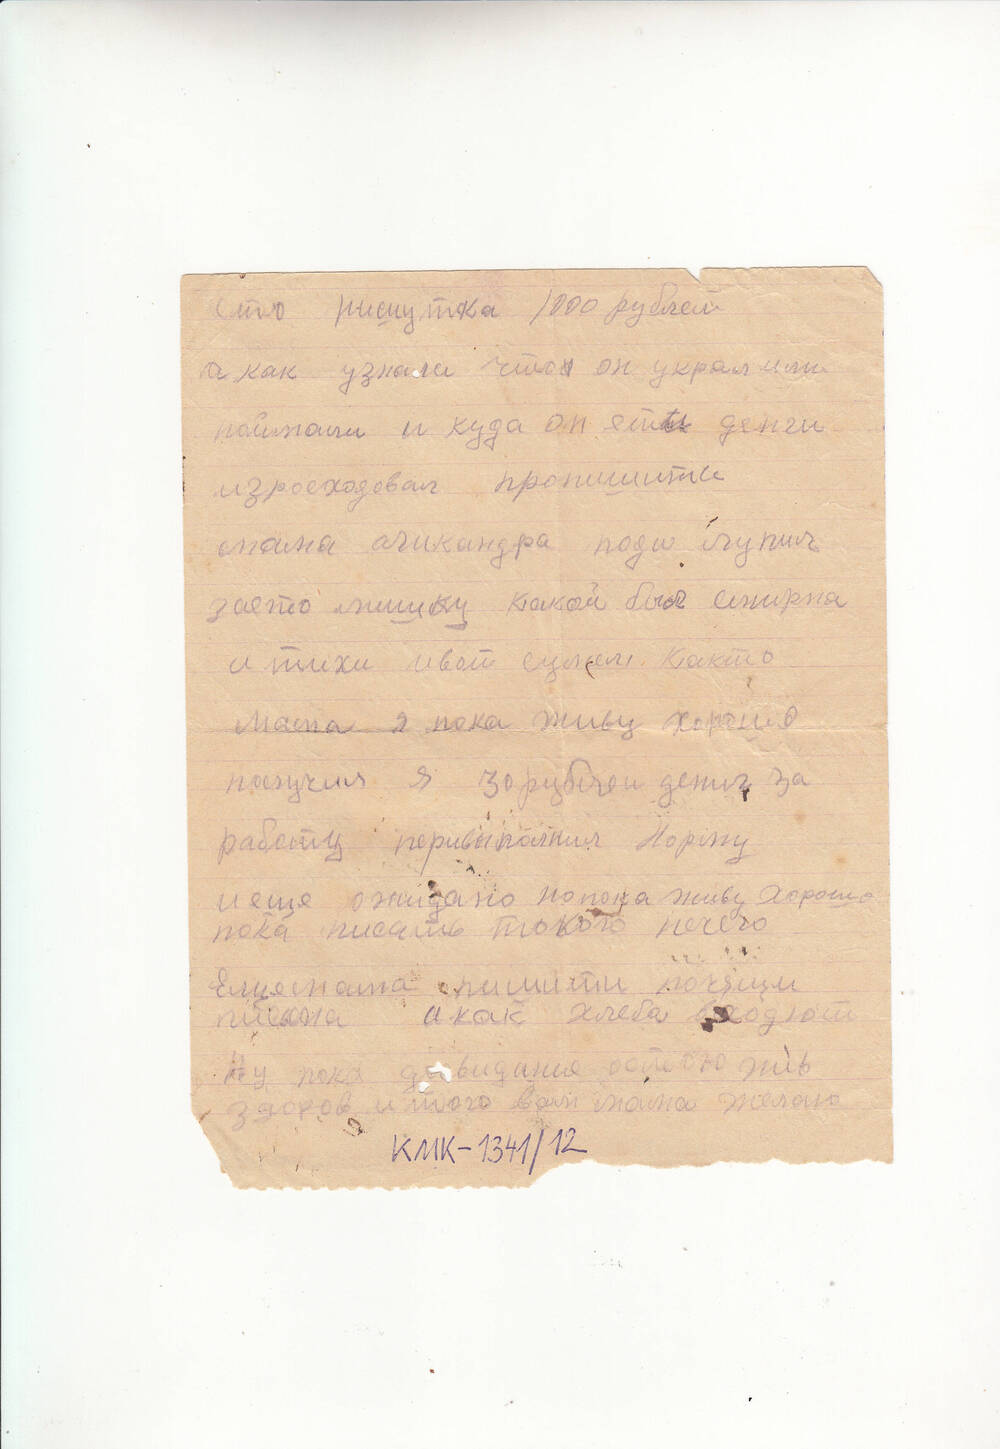 1000 рублей
а как узнали что он украл или
поймали и куда он ети денги
израсходовал пропишити
мама аликандра поди лупит
заето мишку какой был смирна
и тихи ивот сумел както
мама я пока живу хорошо
получил я 30 рублей дениг за
работу перивыполнил Норму
иеще ожидаю нопока живу хорошо
пока писать токого нечего
Ещемама пишити почящи
письма а как хлеба всходют
Ну пока довидания остаюю жив
здоров итого вам мама желаю
КМК-1341/12